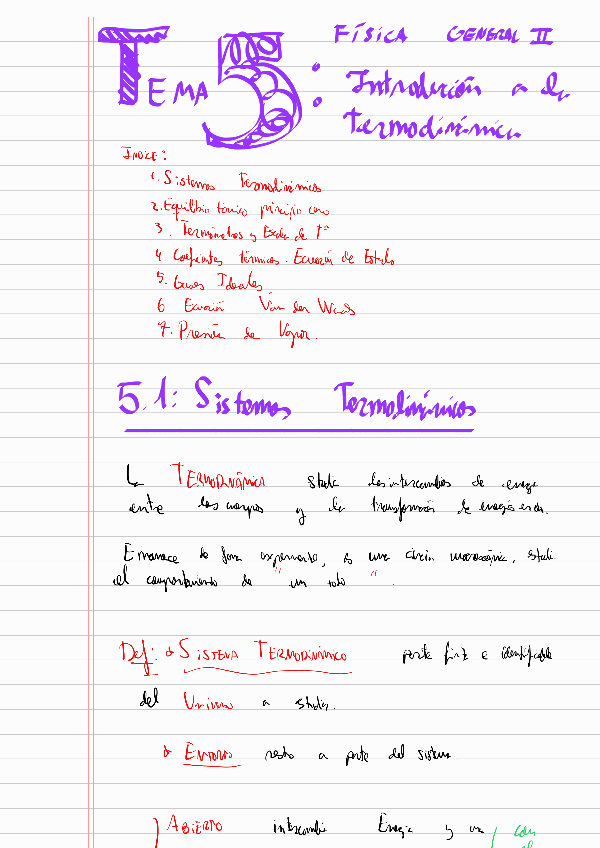 FÍSICA GENERAL II
TEMA 5: Introducción a la
termodinámica
ÍNDICE:
1. Sistemas Termodinámicos
2. Equilibrio térmico principio cero
3. Termómetros y Escala de Tª
4 Coeficientes térmicos. Ecuación de Estado
5. Gases Ideales.
6 Ecuación Van der Waals
7. Presión de Vapor.
5.1: Sistemas Termodinámicos
La TERMODINÁMICA studia los intercambios de energía
entre los cuerpos y la transformación de energía en
E de forma experimental, es una ciencia macroscópica, studia
el comportamiento de "un todo".
Def: SISTEMA TERMODINÁMICO parte finita e identificable
del Universo a studiar.
ENTORNO resto a parte del sistema
ABIERTO intercambia Energía y
con